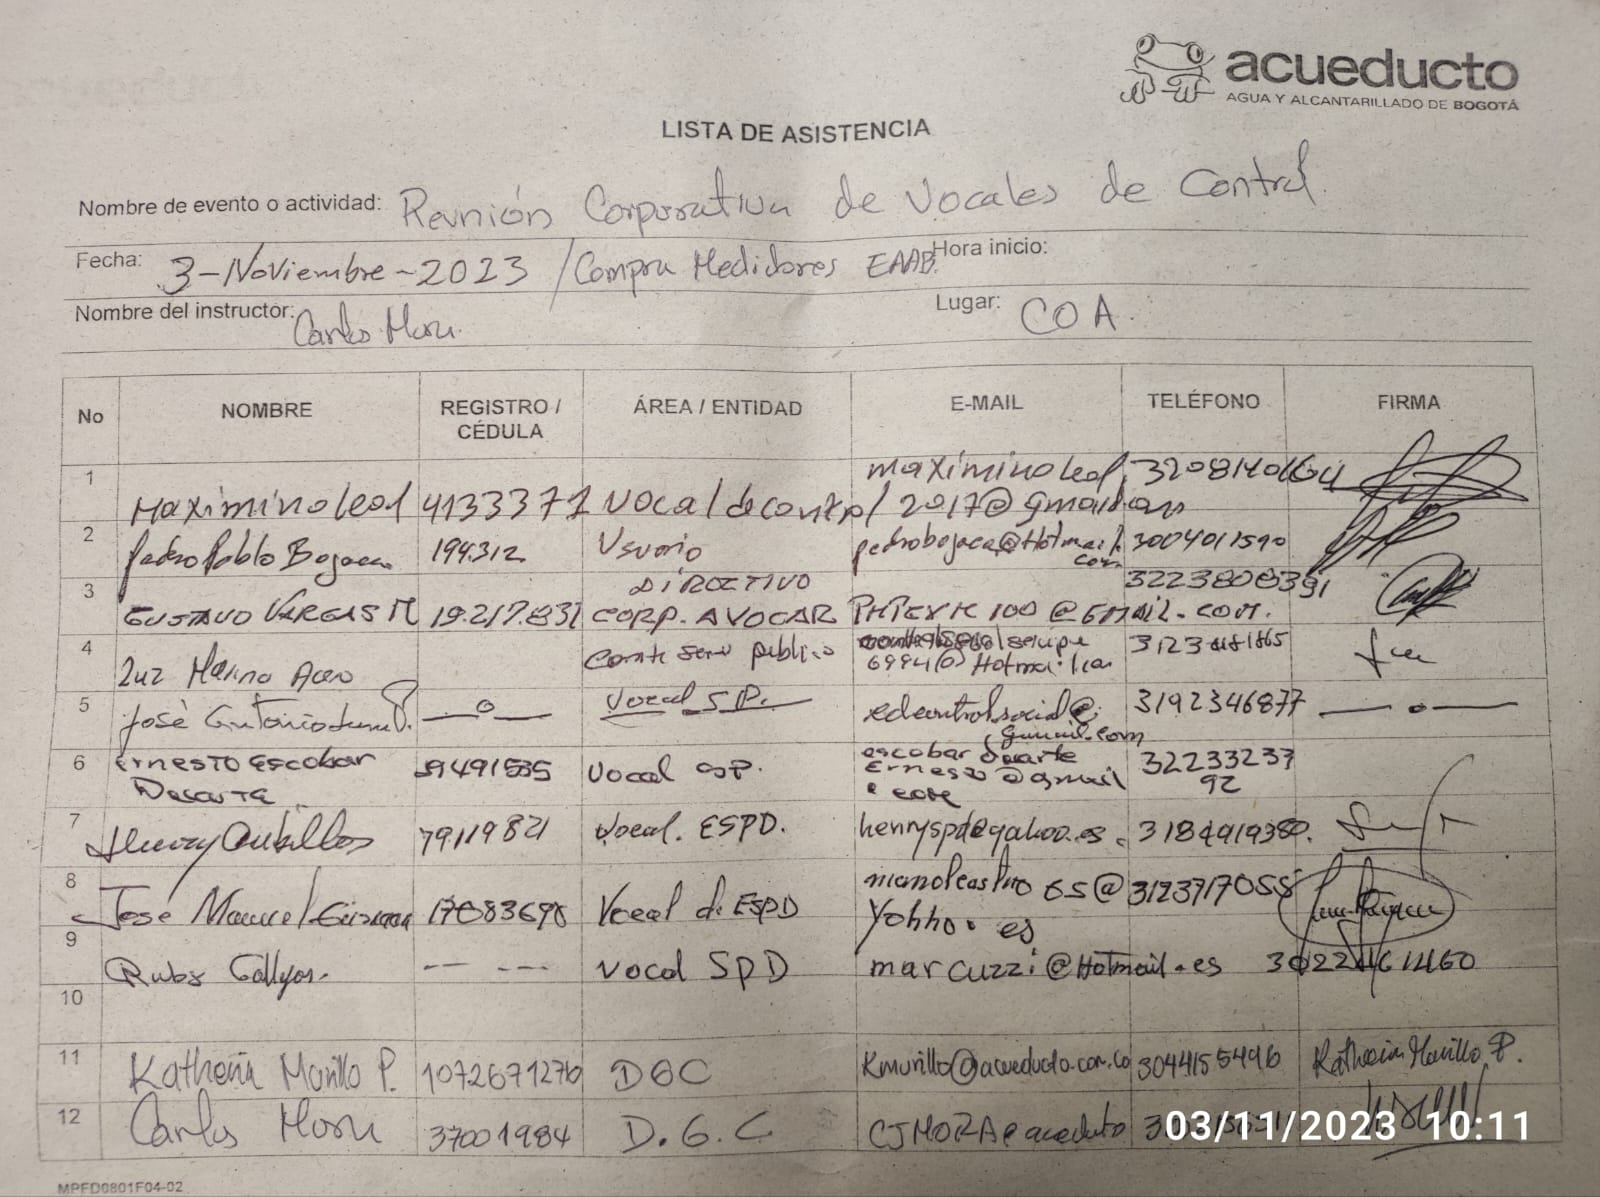 acueducto
AGUA Y ALCANTARILLADO DE BOGOTÁ
LISTA DE ASISTENCIA
Nombre de evento o actividad: Reunión Corporativa de Vocales de Control
Fecha: 3-Noviembre-2023 / Compra Medidores EAAB. Hora inicio:
Nombre del instructor: Carlos Mora. Lugar: COA.
No NOMBRE REGISTRO / CÉDULA ÁREA / ENTIDAD E-MAIL TELÉFONO FIRMA
1 Maximino leal 4133371 vocal de control maximinoleal 2017@gmail.com
2 Pedro Pablo Bojaca 194.312 Usuario pedrobojaca@Hotmail.com 3004011590
3 GUSTAVO VARGAS M 19.217.831 DIRECTIVO CORP. AVOCAR
4 Luz Marina Acero publico
5 José Antonio —o— Vocal S.P. redcontrolsocial@gmail.com 3192346877 —o—
6 Ernesto Escobar Duarte vocal SP. escobar duarte Ernesto@gmail.com 3223323792
7 Henry Cubillos 79119821 Vocal. ESPD. henryspd@yahoo.es. 3184919380.
8 José Manuel Vocal de ESPD 65@ Yohho.es 3123717055
9 Ruby -- --- vocal SPD marcuzzi@Hotmail.es
10
11 Katherin Murillo P. 1072671276 DGC Kmurillo@acueducto.com.co 3044155496 Katherin Murillo P.
12 Carlos Mora 37001984 D.G.C CJMORA@acueducto
03/11/2023 10:11
MPFD0801F04-02